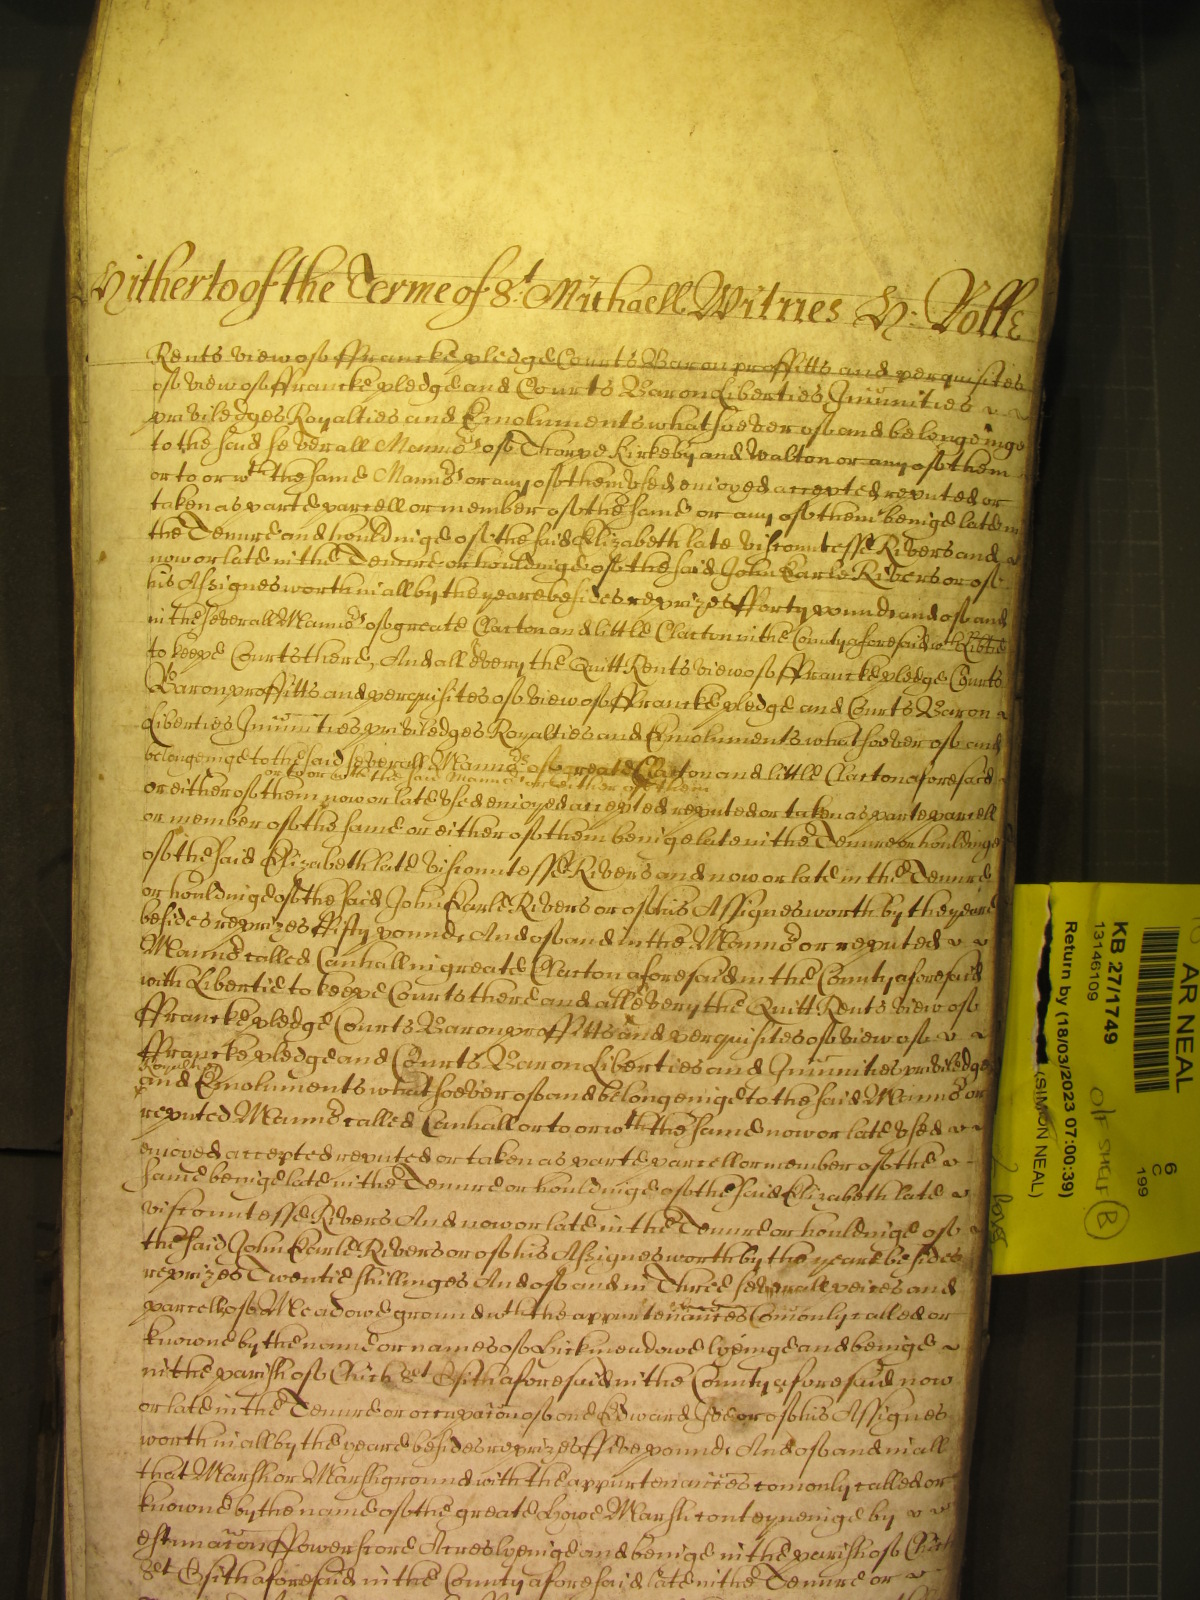 Hitherto of the Terme of St. Michaell Witnes H: Rolle
Rents view of ffrancke pledge Courts Baron proffitts and perquisites
of view of ffrancke pledge and Courts Baron Liberties Imunities
priviledges Royalties and Emoluments whatsoever of and belongeinge
to the said severall Mannors of Thorpe Kirkeby and Walton or any of them
or to or wth the same Mannors or any of them vsed enioyed accepted reputed or
taken as parte parcell or member of the same or any of them beinge late in
the Tenure and houldinge of the said Elizabeth late Viscountesse Rivers and
now or late in the Tenure or houldinge of the said John Earle Rivers or of
his Assignes worth in all by the yeare besides reprizes fforty pounds and of and
in the severall Mannors of greate Clacton and little Clacton in the County aforesaid wth Libtie
to keepe Courts there, And all & every the Quitt Rents view of ffrancke pledge Courts
Baron proffitts and perquisites of view of ffrancke pledge and Courts Baron
Liberties Imunities priviledges Royalties and Emoluments whatsoever of and
belongeinge to the said severall Mannors of greate Clacton and little Clacton aforesaid
or to or with the said Mannors or either of them
or either of them now or late vsed enioyed accepted reputed or taken as parte parcell
or member of the same or either of them beinge late in the Tenure or houldinge
of the said Elizabeth late Viscountesse Rivers and now or late in the Tenure
or houldinge of the said John Earle Rivers or of his Assignes worth by the yeare
besides reprizes ffifty pounds, And of and in the Mannor or reputed
Mannor called Canhall in greate Clacton aforesaid in the County aforesaid
with Libertie to keepe Courts there and all & every the Quitt Rents view of
ffrancke pledge Courts Baron proffitts and perquisites of view of
ffrancke pledge and Courts Baron Liberties and Imunities priviledges
Royalties
and Emoluments whatsoever of and belongeinge to the said Mannor or
reputed Mannor called Canhall or to or wth the same now or late vsed
enioyed accepted reputed or taken as parte parcell or member of the
same beinge late in the Tenure or houldinge of the said Elizabeth late
Viscountesse Rivers And now or late in the Tenure or houldinge of
the said John Earle Rivers or of his Assignes worth by the yeare besides
reprizes Twentie shillinges And of and in Three severall peices and
parcells of Meadowe ground wth the appurtenances Comonly called or
knowne by the name or names of Lickmeadowe lyeinge and beinge
in the parish of Chich St Osith aforesaid in the County aforesaid now
or late in the Tenure or occupacion of one Edward or of his Assignes
worth in all by the yeare besides reprizes ffive pounds, And of and in all
that Marsh or Marsh ground with the appurtenances comonly called or
knowne by the name of the greate Howe Marsh conteyneinge by
estimacion ffowerscore Acres lyeinge and beinge in the parish of Chich
St Osith aforesaid in the County aforesaid late in the Tenure or
AR NEAL
6
C
199
KB 27/1749
13146109
Return by (18/03/2023 07:00:39)
(SIMON NEAL)
off shelf
B